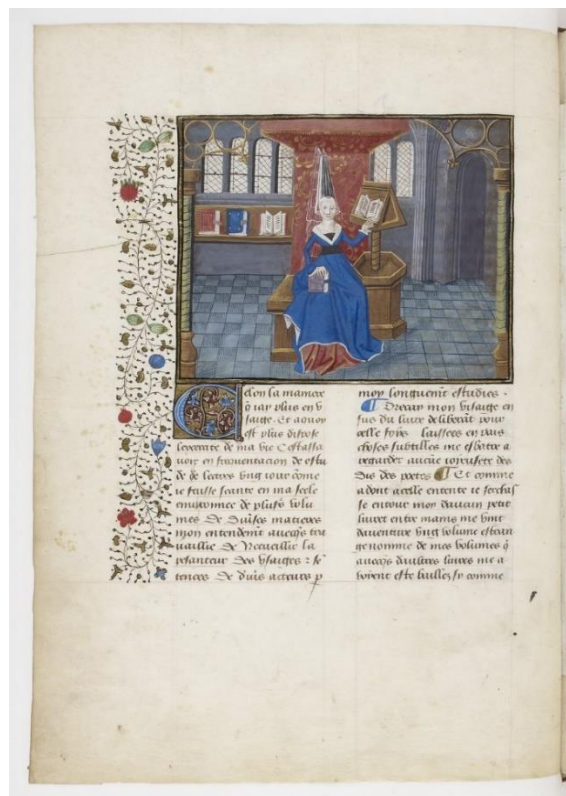 elon la maniere
q iay plus en v
saige. Et a quoy
est plus dispose
lexercite de ma vie Cestassa
uoir en frequentacion de estu
de de lectres Ung iour come
ie feusse seante en ma selle
enuironnee de plus's volu
mes de diuses matieres
mon entendemt auecqs tra
uaillie de Recueillir la
pesanteur des
tences de diuers acteurs p
moy longuemt estudies.
Drecay mon visaige en
sus du liure deliberant pour
celle fois laissees en paix
choses subtilles me esbatre a
regarder aucune des
dis des poetes Et comme
adont a celle entente ie serchas
se entour moy daucun petit
liuret entre mains me vint
dauenture Ung volume estran
ge nomme de mes volumes q
auecqs daultres liures me a
voyent este bailles sy comme